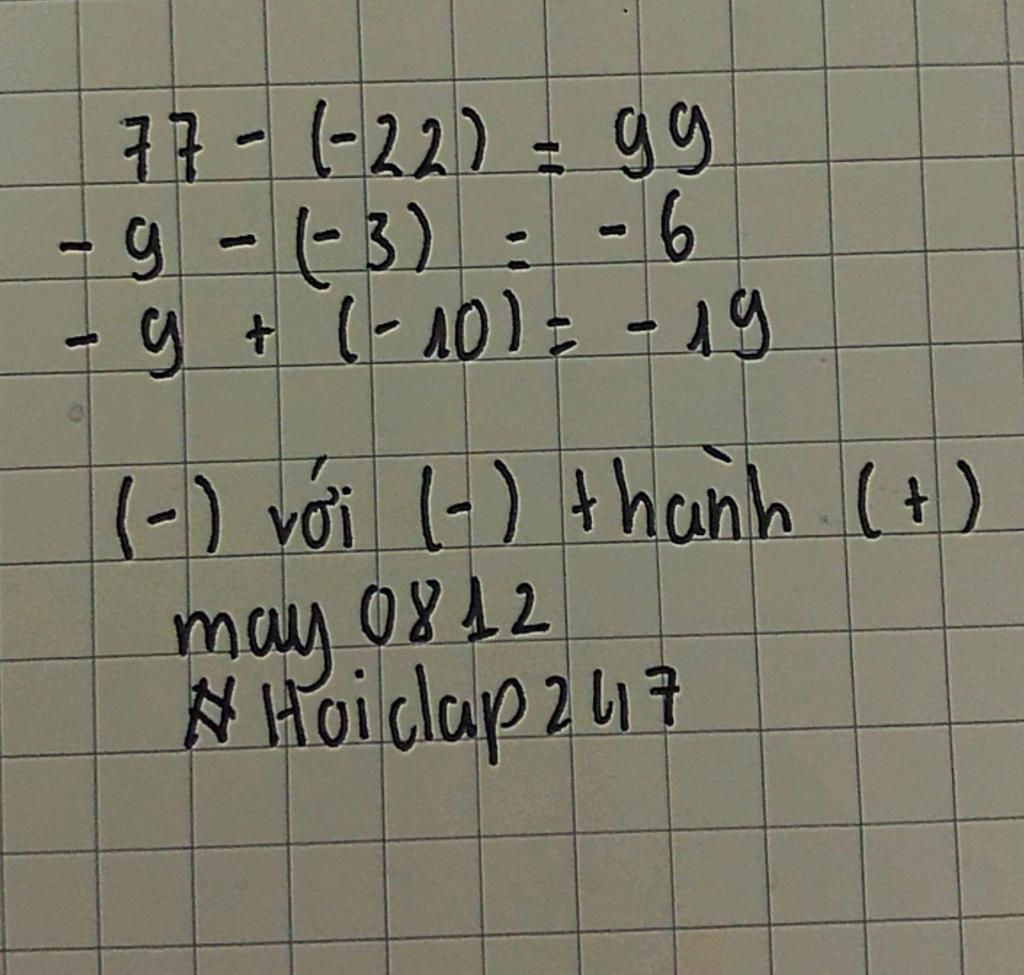 77 - (-22) = 99
- 9 - (-3) = - 6
- 9 + (-10) = - 19
(-) với (-) thành (+)
may 0812
#Hoidap247